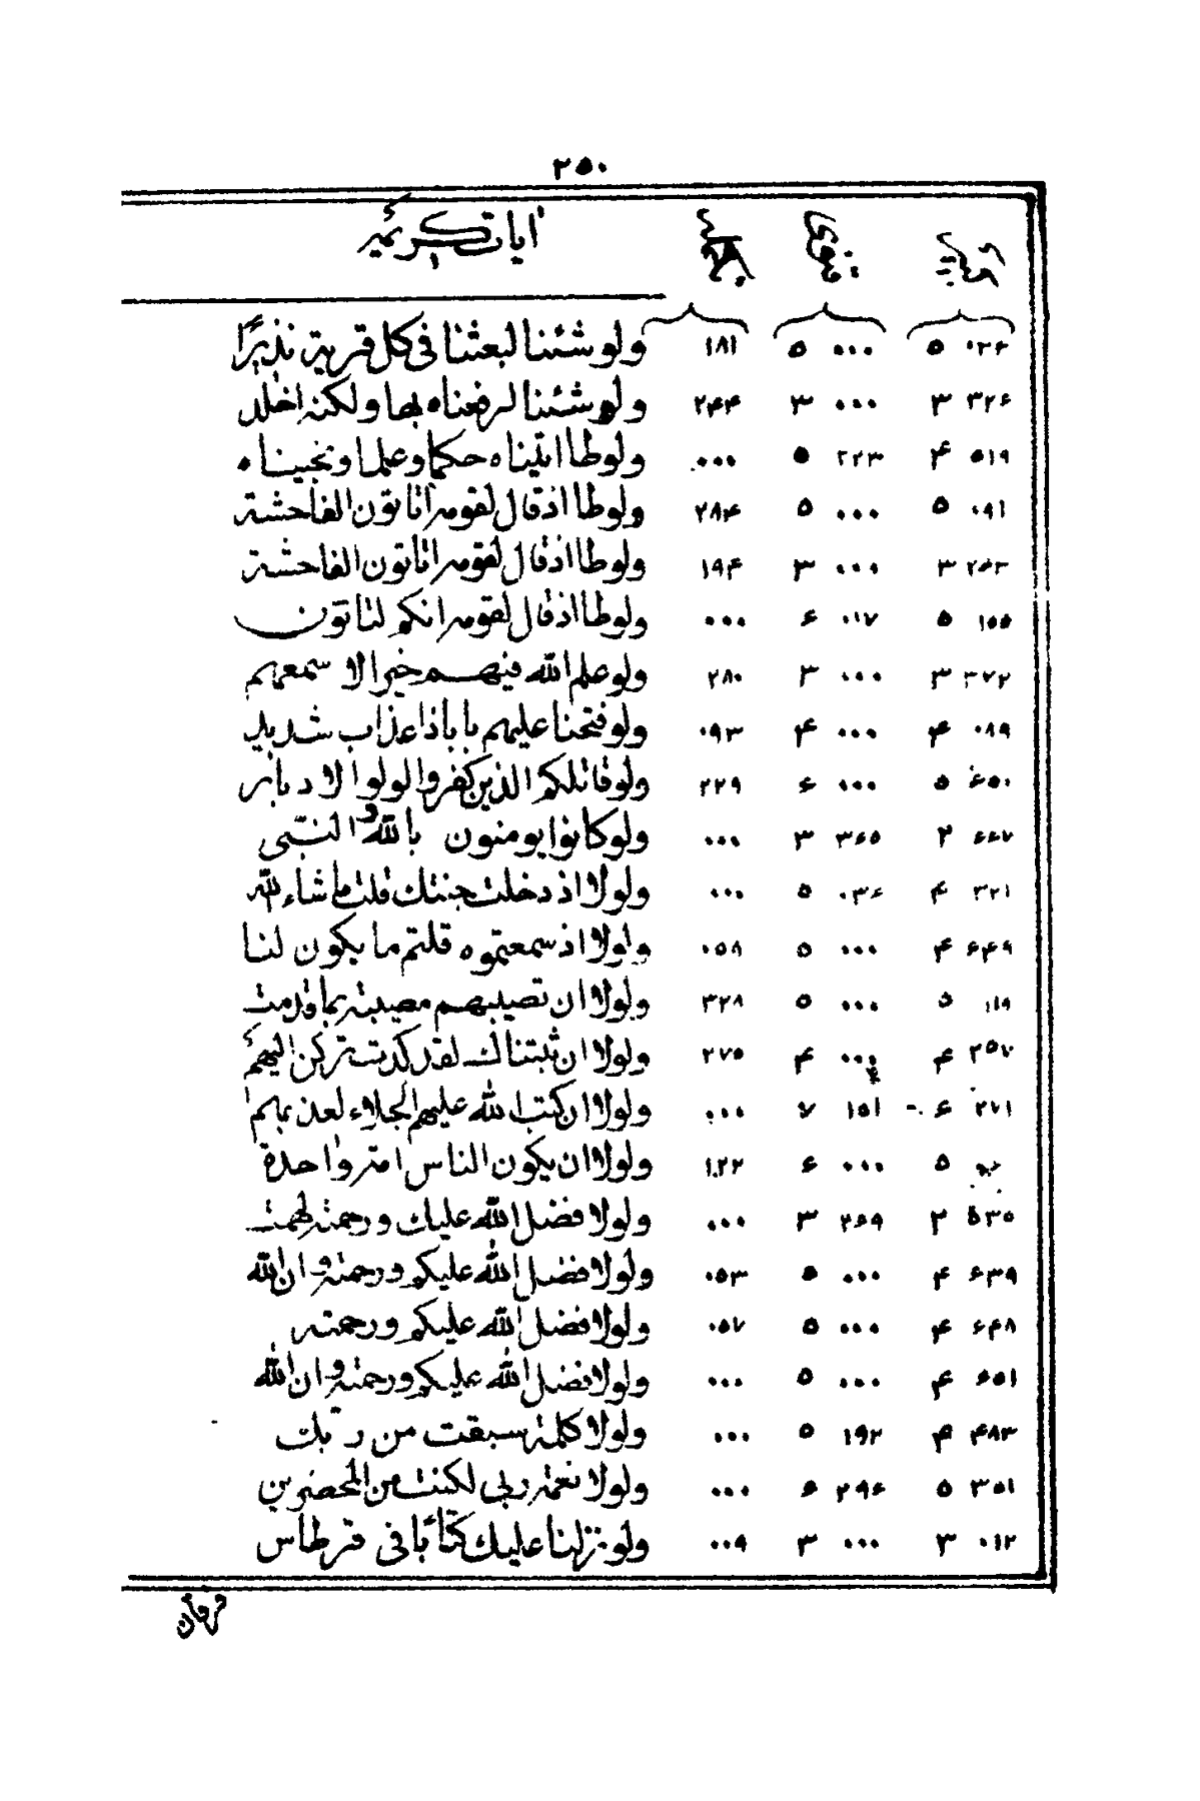 ٢٥٠
ايات كريمه
٠٢٢ ٥ ٠٠٠ ٥ ١٨١ ولو شئنا لبعثنا فى كل قرية نذيرًا
٣٢۶ ٣ ٠٠٠ ٣ ٢۴۴ ولو شئنا لرفعناه بها ولكنه اخلد
٥١٩ ۴ ٢٢٣ ٥ ٠٠٠ ولوطا اتيناه حكما وعلما ونجيناه
٠٩١ ٥ ٠٠٠ ٥ ٢٨۴ ولوطا اذ قال لقومه اتاتون الفاحشة
٣ ٠٠٠ ٣ ١٩۴ ولوطا اذ قال لقومه اتاتون الفاحشة
١٥٥ ٥ ٠١٧ ۶ ٠٠٠ ولوطا اذ قال لقومه انكم لتاتون
٣٧٢ ٣ ٠٠٠ ٣ ٢٨٠ ولو علم الله فيهم خيرا لا سمعهم
٠٨٩ ۴ ٠٠٠ ۴ ٠٩٣ ولو فتحنا عليهم بابا ذا عذاب شديد
۶٥٠ ٥ ٠٠٠ ۶ ٢٢٩ ولو قاتلكم الذين كفروا لولوا الادبار
۶۶٧ ٢ ٣۶٥ ٣ ٠٠٠ ولو كانوا يومنون بالله و النبّى
٣٢١ ۴ ٠٣۶ ٥ ٠٠٠ ولولا اذ دخلت جنتك قلت ما شاء الله
۶۴٩ ۴ ٠٠٠ ٥ ٠٥٨ ولولا اذ سمعتموه قلتم ما يكون لنا
٠١٩ ٥ ٠٠٠ ٥ ٣٢٨ ولولا ان تصيبهم مصيبة بما قدمت
٢٥٧ ۴ ٠٠٠ ۴ ٢٧٥ ولولا ان ثبتناك لقد كدت تركن اليهم
٢٧١ ۶ ١٥١ ٧ ٠٠٠ ولولا ان كتب الله عليهم الجلاء لعذبهم
٥ ٠٠٠ ۶ ١٢٢ ولولا ان يكون الناس امة واحدة
٥٣٥ ٢ ٢۶٩ ٣ ٠٠٠ ولولا فضل الله عليك ورحمته لهمت
۶٣٩ ۴ ٠٠٠ ٥ ٠٥٣ ولولا فضل الله عليكم ورحمته و ان الله
۶۴٨ ۴ ٠٠٠ ٥ ٠٥٧ ولولا فضل الله عليكم ورحمته
۶٥١ ۴ ٠٠٠ ٥ ٠٠٠ ولولا فضل الله عليكم ورحمته و ان الله
۴٨٣ ۴ ١٩٢ ٥ ٠٠٠ ولولا كلمة سبقت من ربّك
٣٥١ ٥ ٢٩۶ ۶ ٠٠٠ ولولا نعمة ربى لكنت من المحضرين
٠١٢ ٣ ٠٠٠ ٣ ٠٠٩ ولو نزلنا عليك كتابًا فى قرطاس